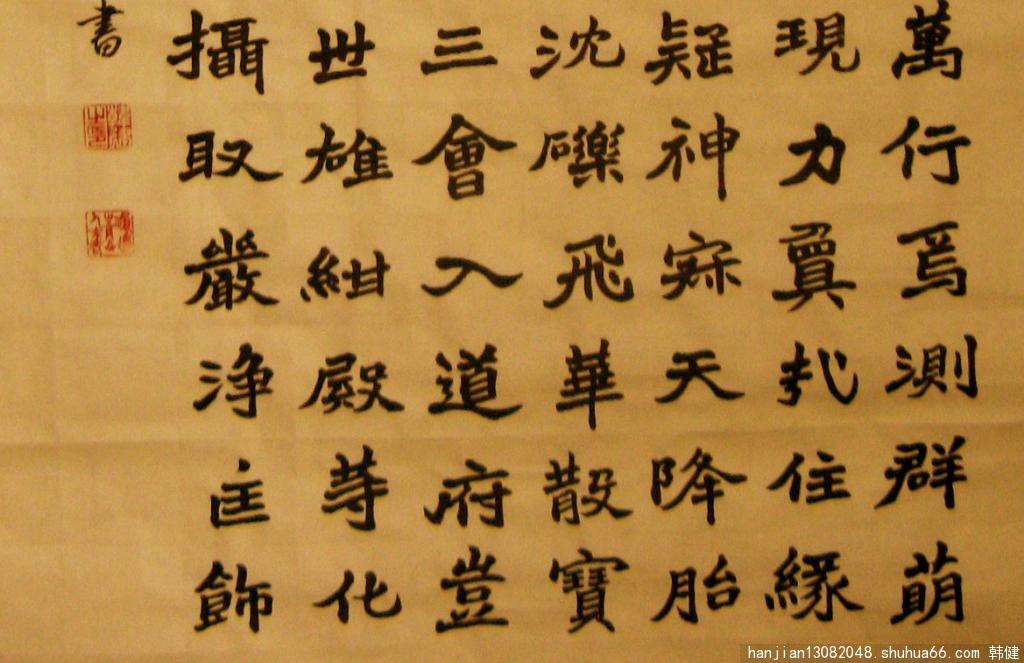 萬行焉測群萌
現力住緣
疑神寐天降胎
沈礫飛華散寶
三會入道府豈
世雄紺殿等化
攝取嚴淨匡飾
書
hanjian13082048.shuhua66.com 韩健